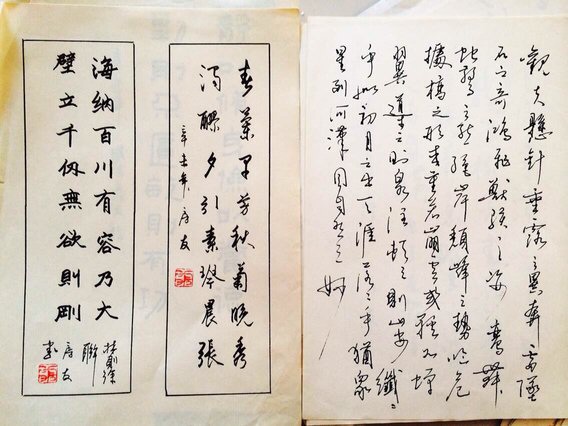 觀夫懸針垂露之異奔雷墜
石之奇鴻飛獸駭之姿鸞舞
蛇驚之態絕岸頹峰之勢臨危
據槁之形或重若崩雲或輕如蟬
翼導之則泉注頓之則山安纖纖
乎似初月之出天涯落落乎猶衆
星列河漢同自然之妙
春蘭早芳秋菊晚秀
濁醪夕引素琴晨張
辛未年
海納百川有容乃大
壁立千仞無欲則剛
林則徐
聯